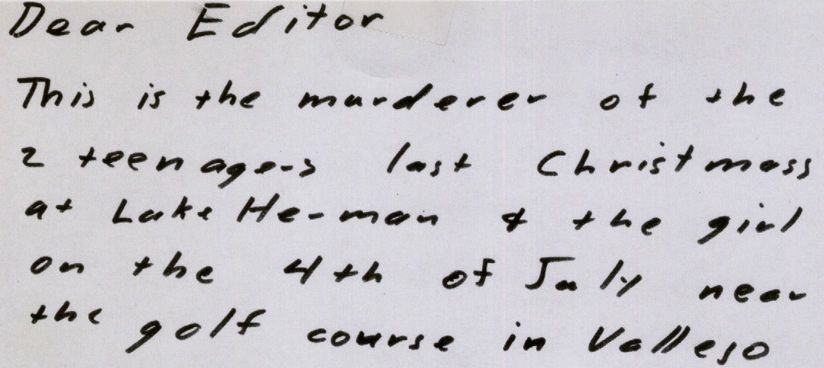 Dear Editor
This is the murderer of the
2 teenagers last Christmass
at Lake Herman & the girl
on the 4th of July near
the golf course in Vallejo